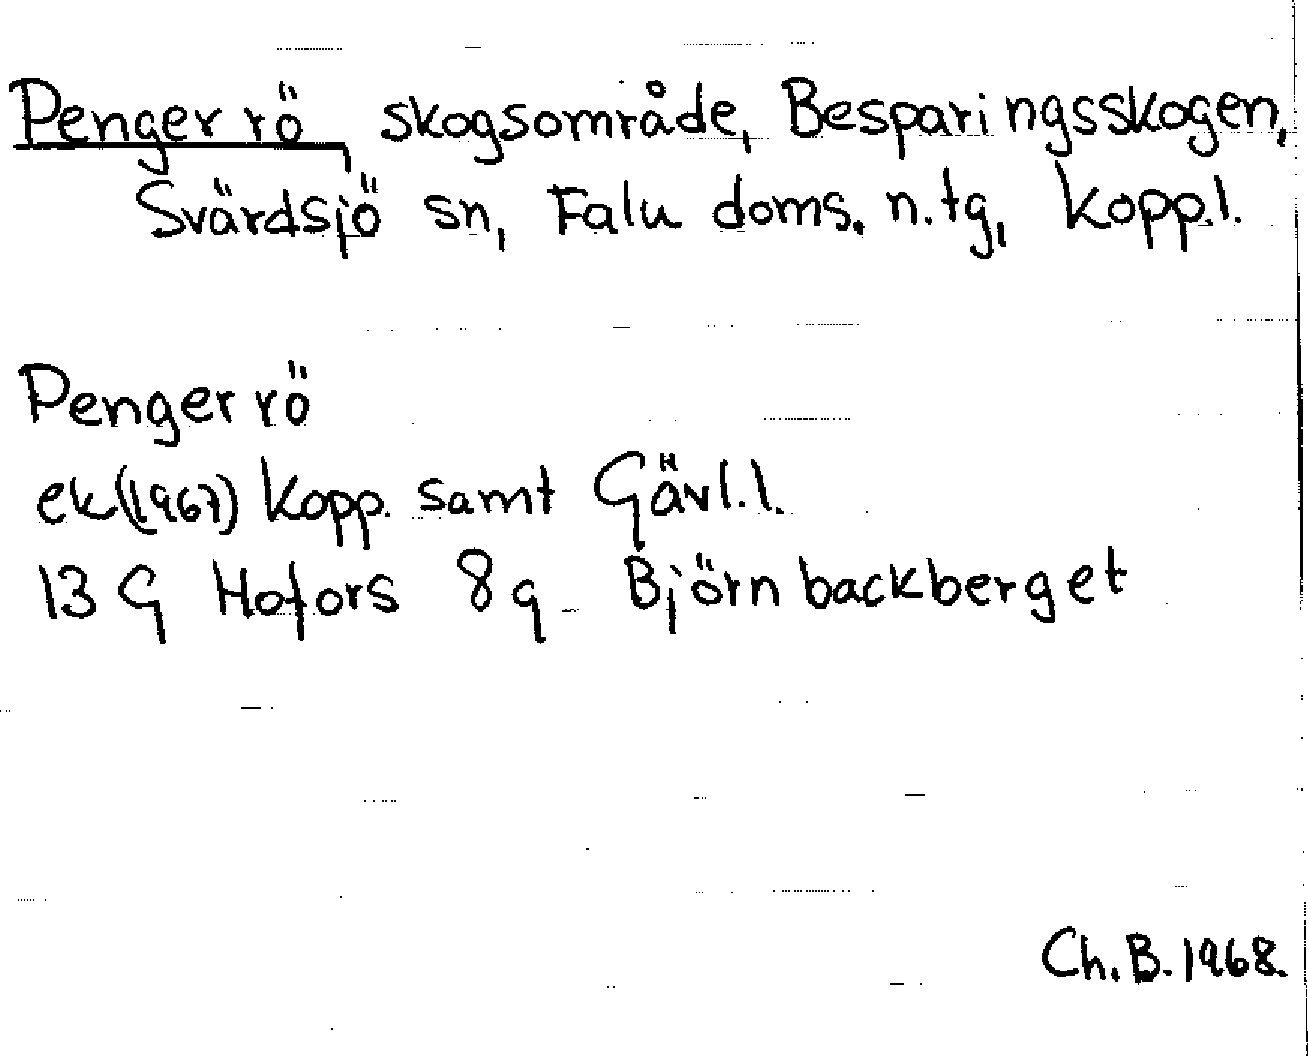 Pengerrö, skogsområde, Besparingsskogen,
Svärdsjö sn, Falu doms. n.tg, Kopp.l.
Pengerrö
ek (1967) Kopp. samt Gävl.l.
13 G Hofors 8g Björnbackberget
Ch.B. 1968.